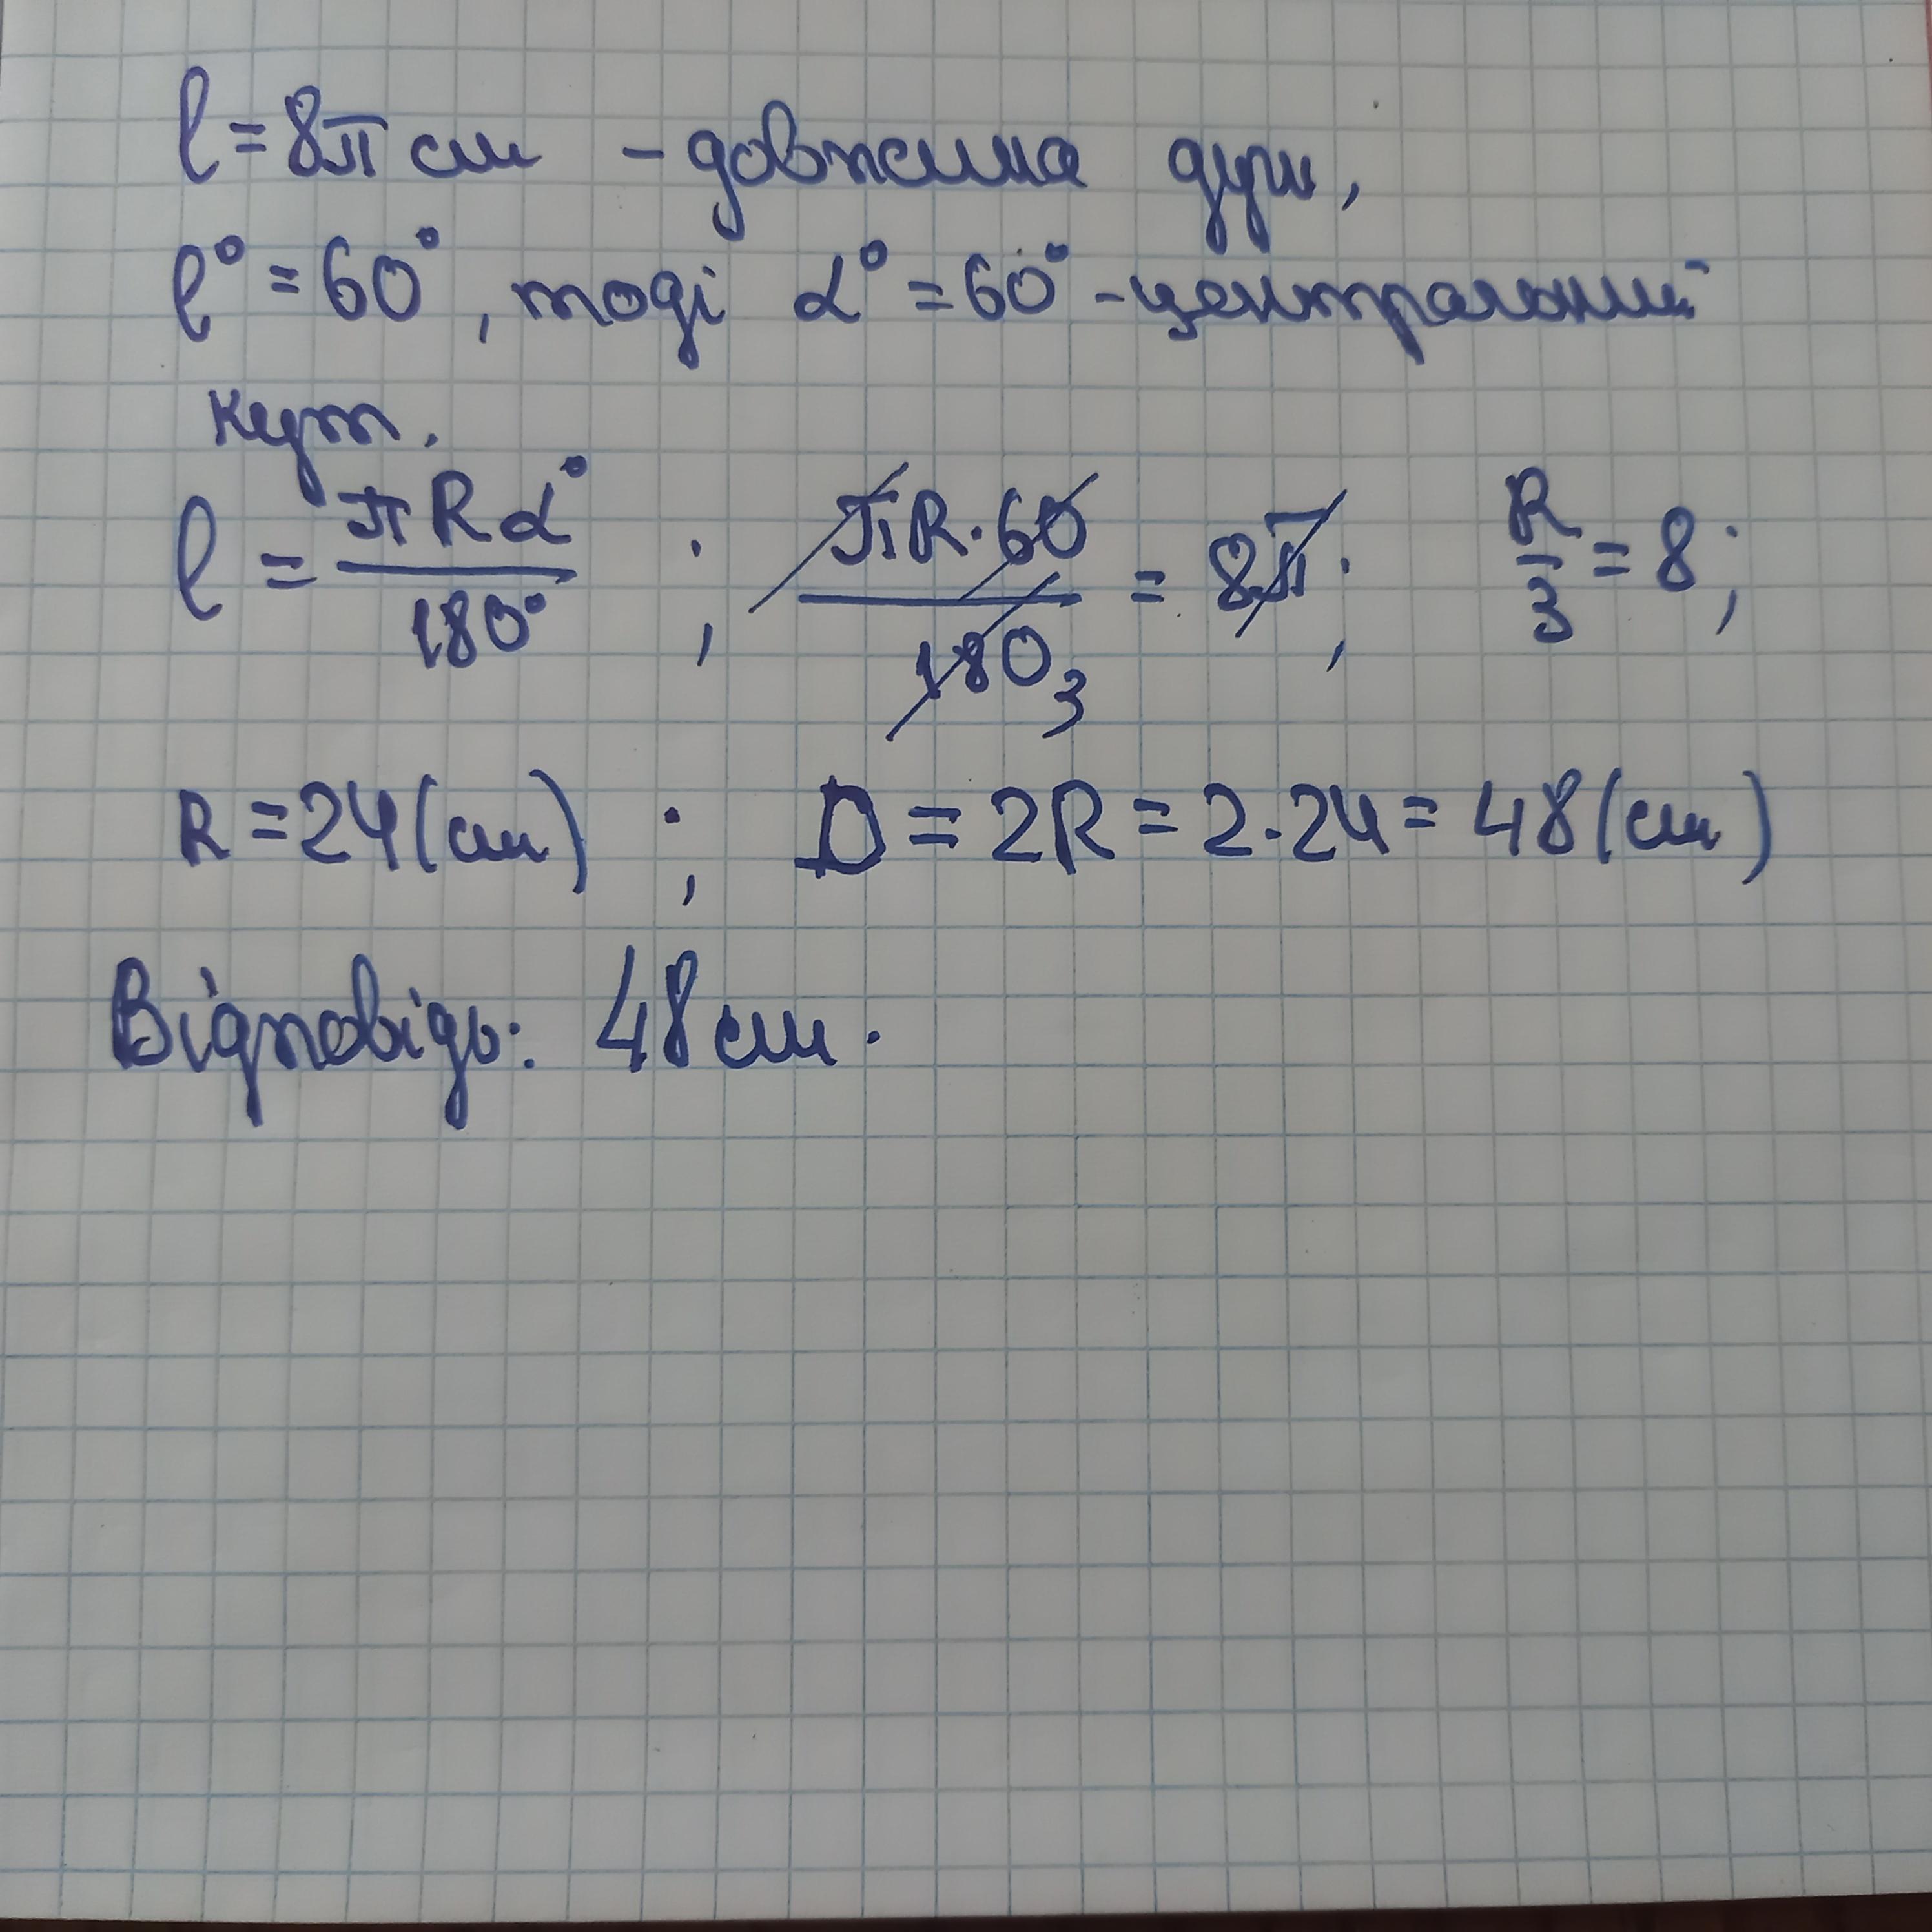 l = 8π см - довжина дуги,
l° = 60°, тоді α° = 60° - центральний
кут.
l = πRα° / 180° ; πR·60 / 180 3 = 8π; R/3 = 8;
R = 24 (см) ; D = 2R = 2·24 = 48 (см)
Відповідь: 48 см.